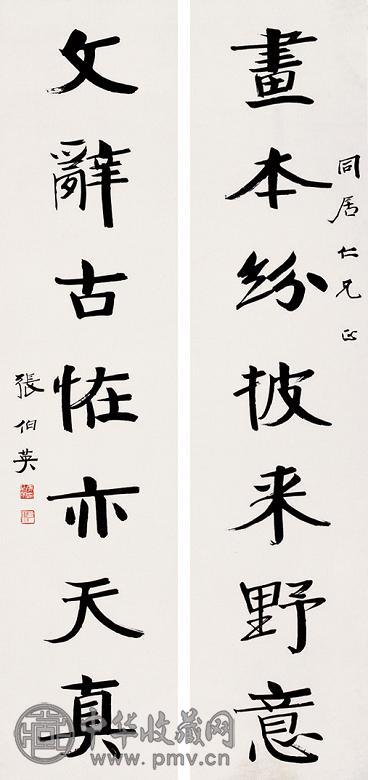 同居仁兄正
畫本紛披来野意
文辭古恠亦天真
張伯英
中华收藏网
www.pmv.cn